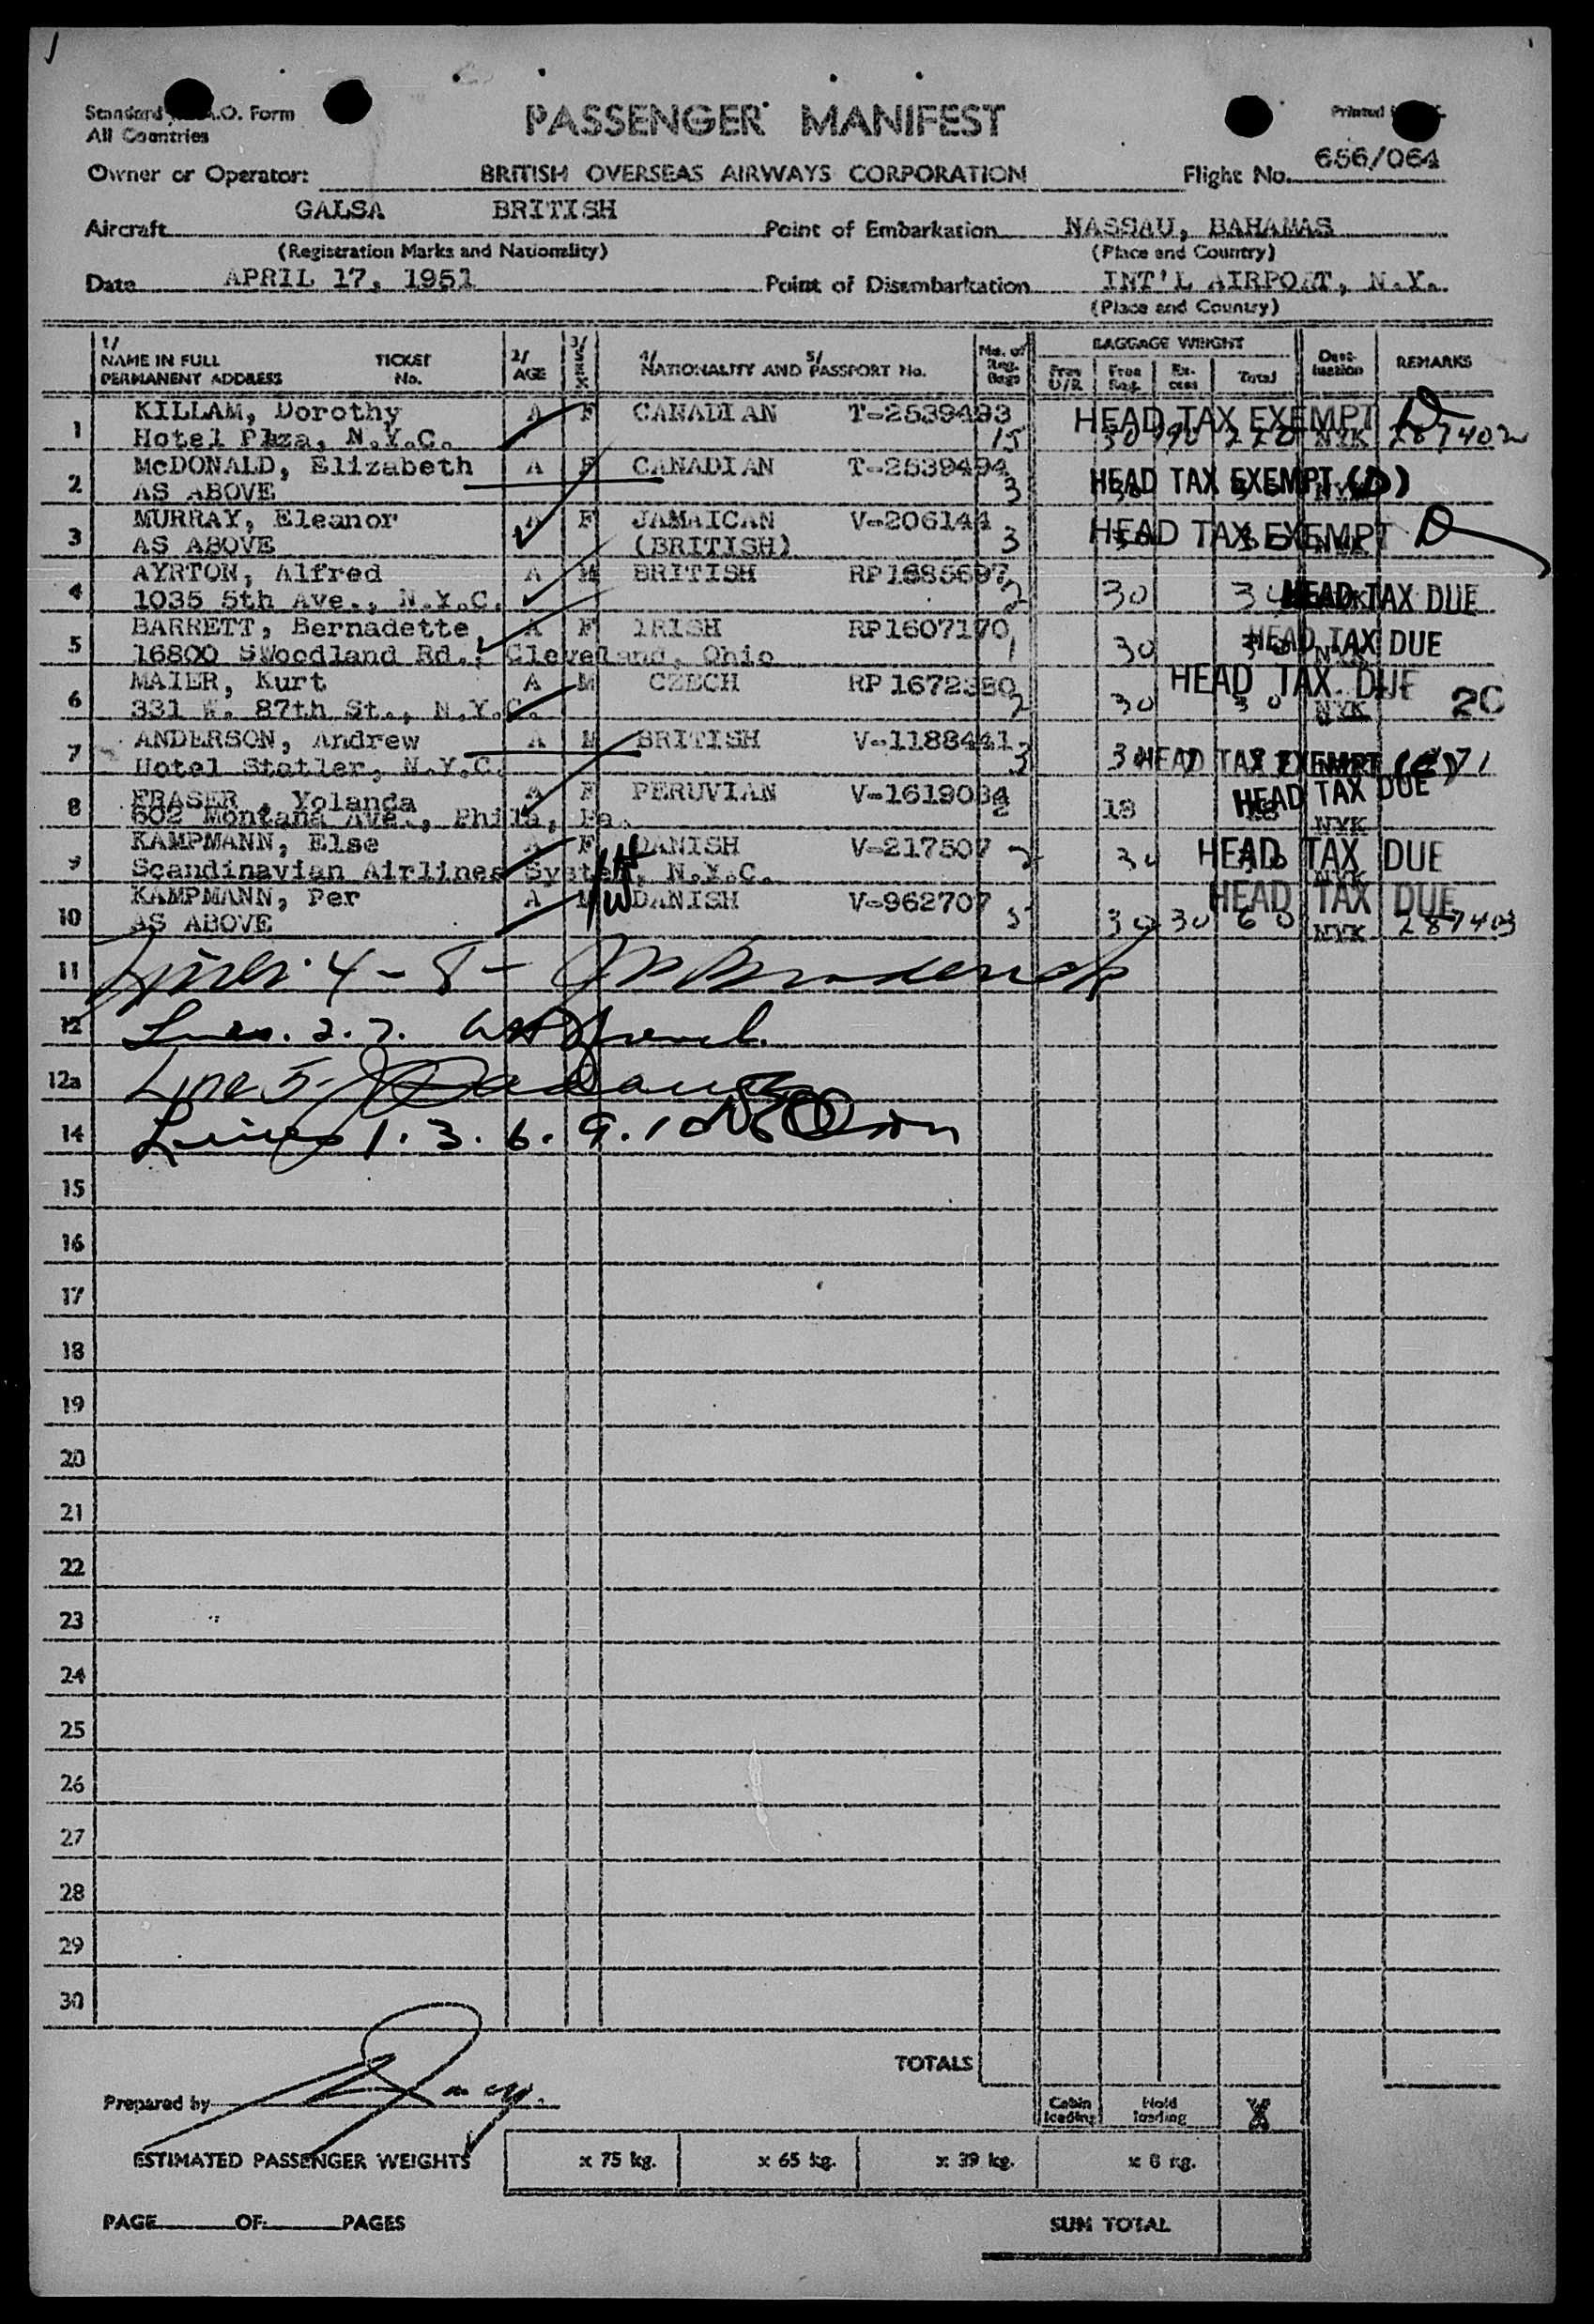 Standard .O. Form
All Countries
PASSENGER MANIFEST
Printed
Owner or Operator: BRITISH OVERSEAS AIRWAYS CORPORATION Flight No. 656/064
Aircraft GALSA BRITISH Point of Embarkation NASSAU, BAHAMAS
(Registration Marks and Nationality) (Place and Country)
Date APRIL 17, 1951 Point of Disembarkation INT'L AIRPORT, N.Y.
(Place and Country)
1/ NAME IN FULL PERMANENT ADDRESS TICKET No. 2/ AGE 3/ SEX 4/ NATIONALITY AND 5/ PASSPORT No. No. of Reg. Bags BAGGAGE WEIGHT Free U/R Free Reg. Ex-cess Total Dest-ination REMARKS
1 KILLAM, Dorothy A F CANADIAN T-2539493 HEAD TAX EXEMPT D
Hotel Plaza, N.Y.C. 15 30 190 220 NYK 287402
2 McDONALD, Elizabeth A F CANADIAN T-2539494 HEAD TAX EXEMPT (D)
AS ABOVE 3 NYK
3 MURRAY, Eleanor A F JAMAICAN V-206144 HEAD TAX EXEMPT D
AS ABOVE (BRITISH) 3
4 AYRTON, Alfred A M BRITISH RP1685697
1035 5th Ave., N.Y.C. 2 30 HEAD TAX DUE
5 BARRETT, Bernadette A F IRISH RP1607170
16800 SWoodland Rd., Cleveland, Ohio 1 30 HEAD TAX DUE
6 MAIER, Kurt A M CZECH RP 1672380 HEAD TAX DUE
331 W. 87th St., N.Y.C. 2 30 30 NYK 20
7 ANDERSON, Andrew A M BRITISH V-1188441
Hotel Statler, N.Y.C. HEAD TAX EXEMPT
8 FRASER, Yolanda A F PERUVIAN V-1619084 HEAD TAX DUE
602 Montana Ave., Phila, Pa. 2 18 NYK
9 KAMPMANN, Else A F DANISH V-217507 HEAD TAX DUE
Scandinavian Airlines System, N.Y.C. 2 30 NYK
10 KAMPMANN, Per A M DANISH V-962707 HEAD TAX DUE
AS ABOVE 30 30 60 NYK 287403
11 Lines 4-8-
12 Lines. 2.7.
12a Line 5-
14 Lines 1. 3. 6. 9. 10
15
16
17
18
19
20
21
22
23
24
25
26
27
28
29
30
TOTALS
Prepared by
Cabin loading Hold loading
ESTIMATED PASSENGER WEIGHTS x 75 kg. x 65 kg. x 39 kg. x 8 kg.
PAGE OF PAGES SUM TOTAL